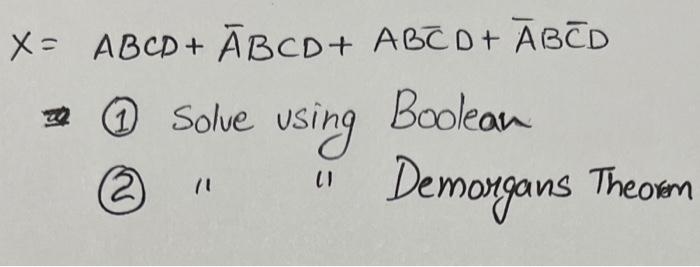 X = ABCD + A̅BCD + ABC̅D + A̅BC̅D
① Solve using Boolean
② " " Demorgans Theorem